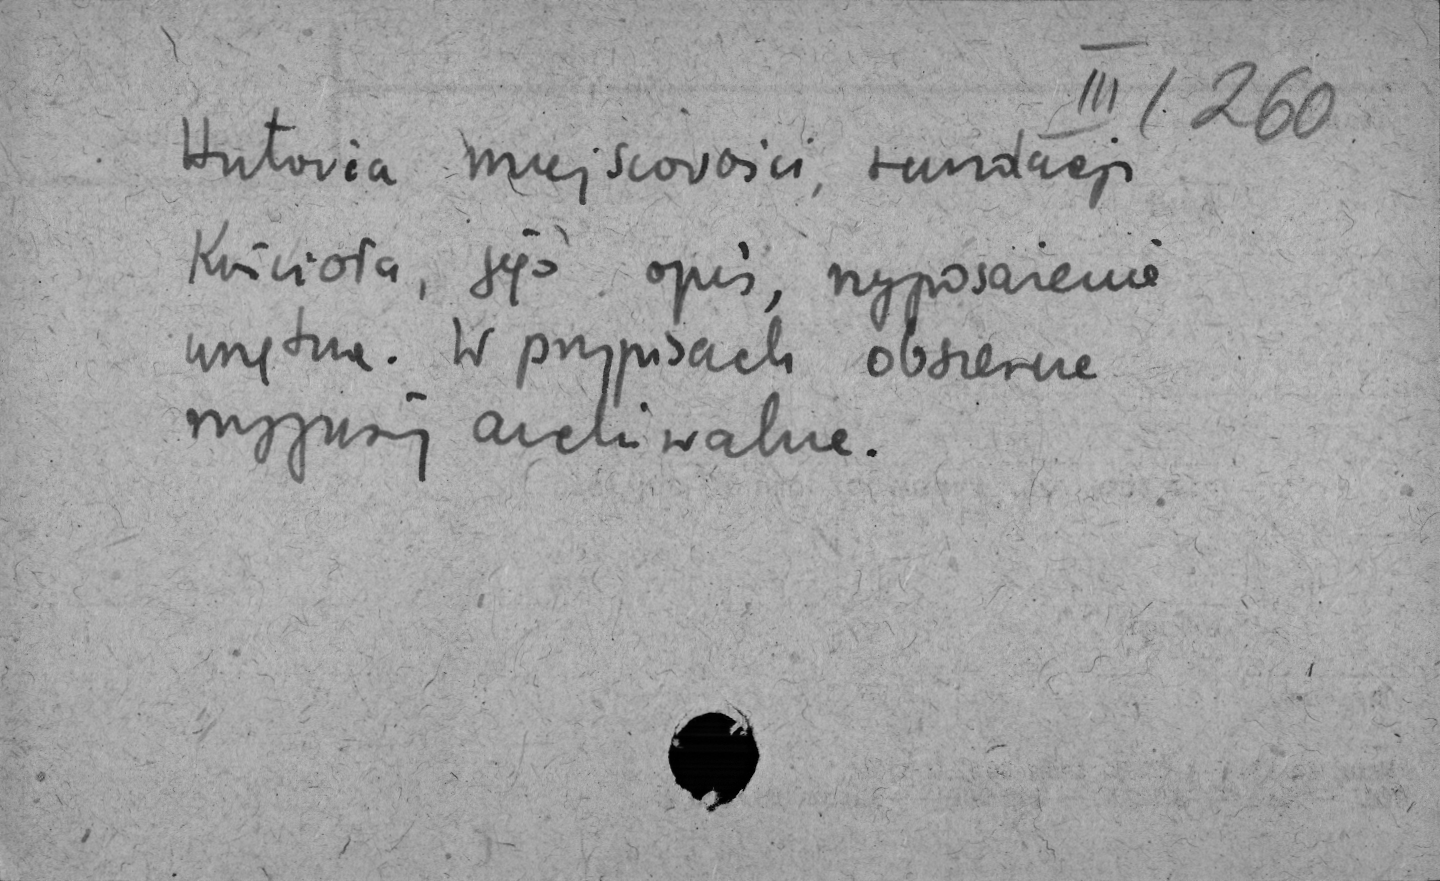 III / 260
Historia miejscowości, fundacji
Kościoła, jego opis, wyposażenie
wnętrza. W przypisach obszerne
wypisy archiwalne.